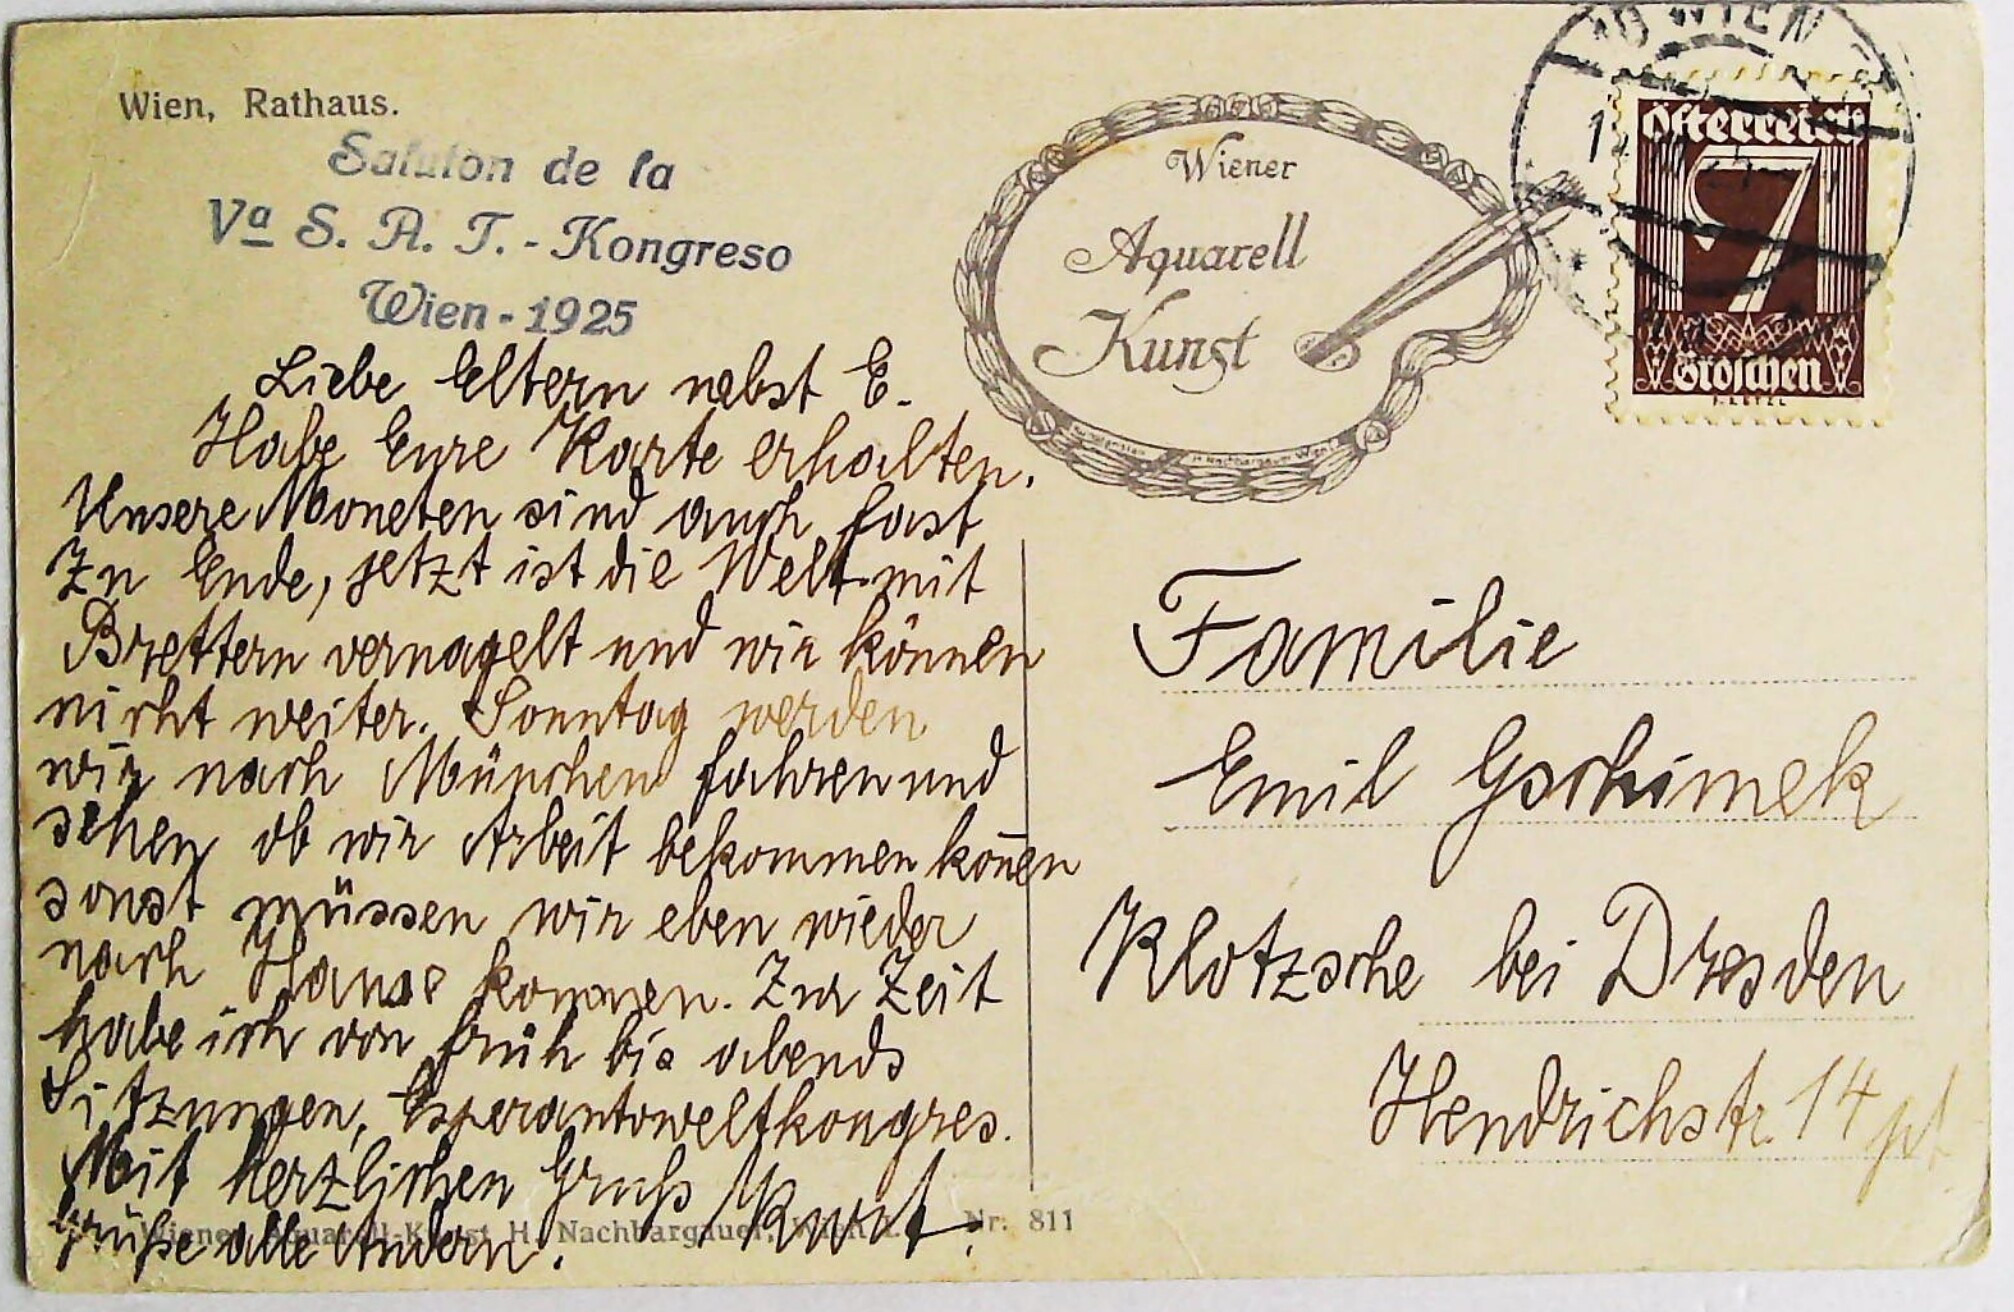 Wien, Rathaus.
Saluton de la
Va S. A. T. - Kongreso
Wien - 1925
Liebe Eltern nebst E.
Habe Eure Karte erhalten.
Unsere Moneten sind auch fast
Zu Ende, jetzt ist die Welt mit
Brettern vernagelt und wir können
nicht weiter. Sonntag werden
wir nach München fahren und
sehen ob wir Arbeit bekommen kön̄en
sonst müssen wir eben wieder
nach Hause kommen. Zur Zeit
habe ich von früh bis abends
Sitzungen, Esperantoweltkongres.
Mit herzlichen Gruß Kurt.
Grüße alle Andern.
Wiener Aquarell-Kunst H. Nachbargauer, Wien Nr. 811
Wiener
Aquarell
Kunst
H. Nachbargauer Wien
WIEN
Österreich
7
Groschen
Familie
Emil Gschimek
Klotzsche bei Dresden
Hendrichstr. 14 pt